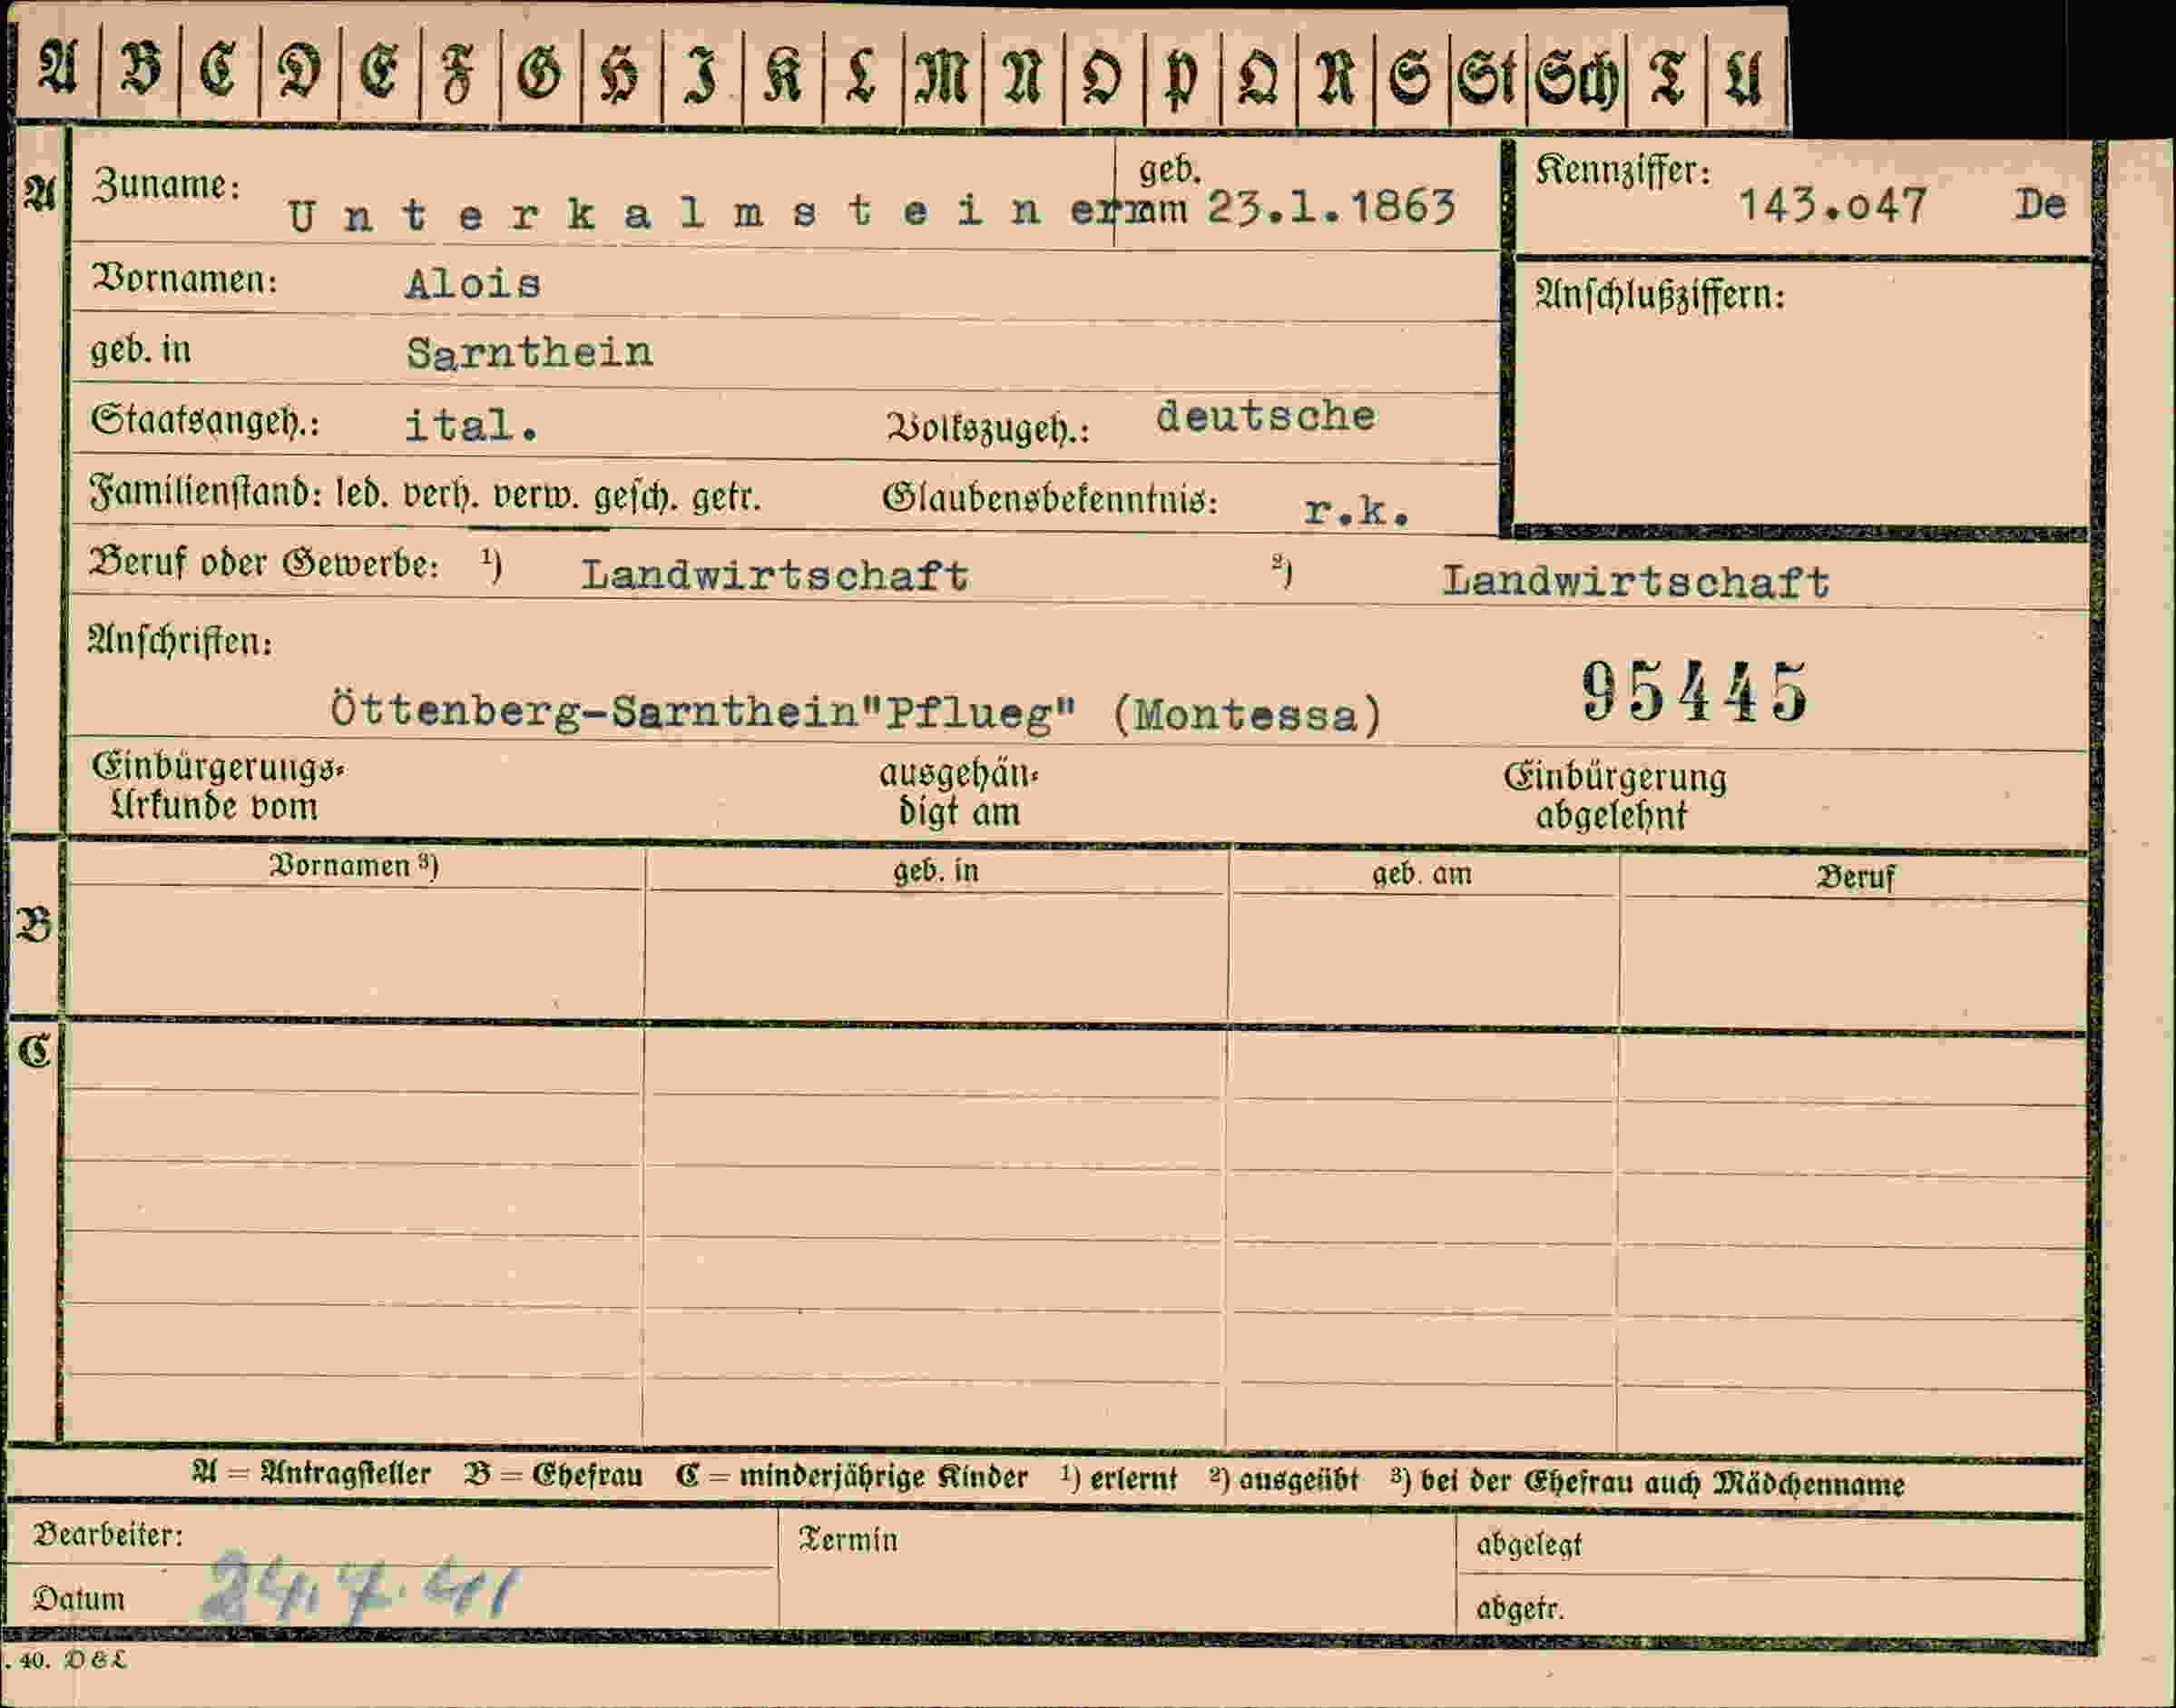 A B C D E F G H I K L M N O P Q R S St Sch T U
A Zuname: Unterkalmsteiner geb. am 23.1.1863 Kennziffer: 143.o47 De
Vornamen: Alois Anschlußziffern:
geb. in Sarnthein
Staatsangeh.: ital. Volkszugeh.: deutsche
Familienstand: led. verh. verw. gesch. getr. Glaubensbekenntnis: r.k.
Beruf oder Gewerbe: 1) Landwirtschaft 2) Landwirtschaft
Anschriften:
Öttenberg-Sarnthein"Pflueg" (Montessa) 95445
Einbürgerungs- ausgehän- Einbürgerung
Urkunde vom digt am abgelehnt
Vornamen 3) geb. in geb. am Beruf
B
C
A = Antragsteller B = Ehefrau C = minderjährige Kinder 1) erlernt 2) ausgeübt 3) bei der Ehefrau auch Mädchenname
Bearbeiter: Termin abgelegt
Datum 24.7.41 abgetr.
. 40. D&L